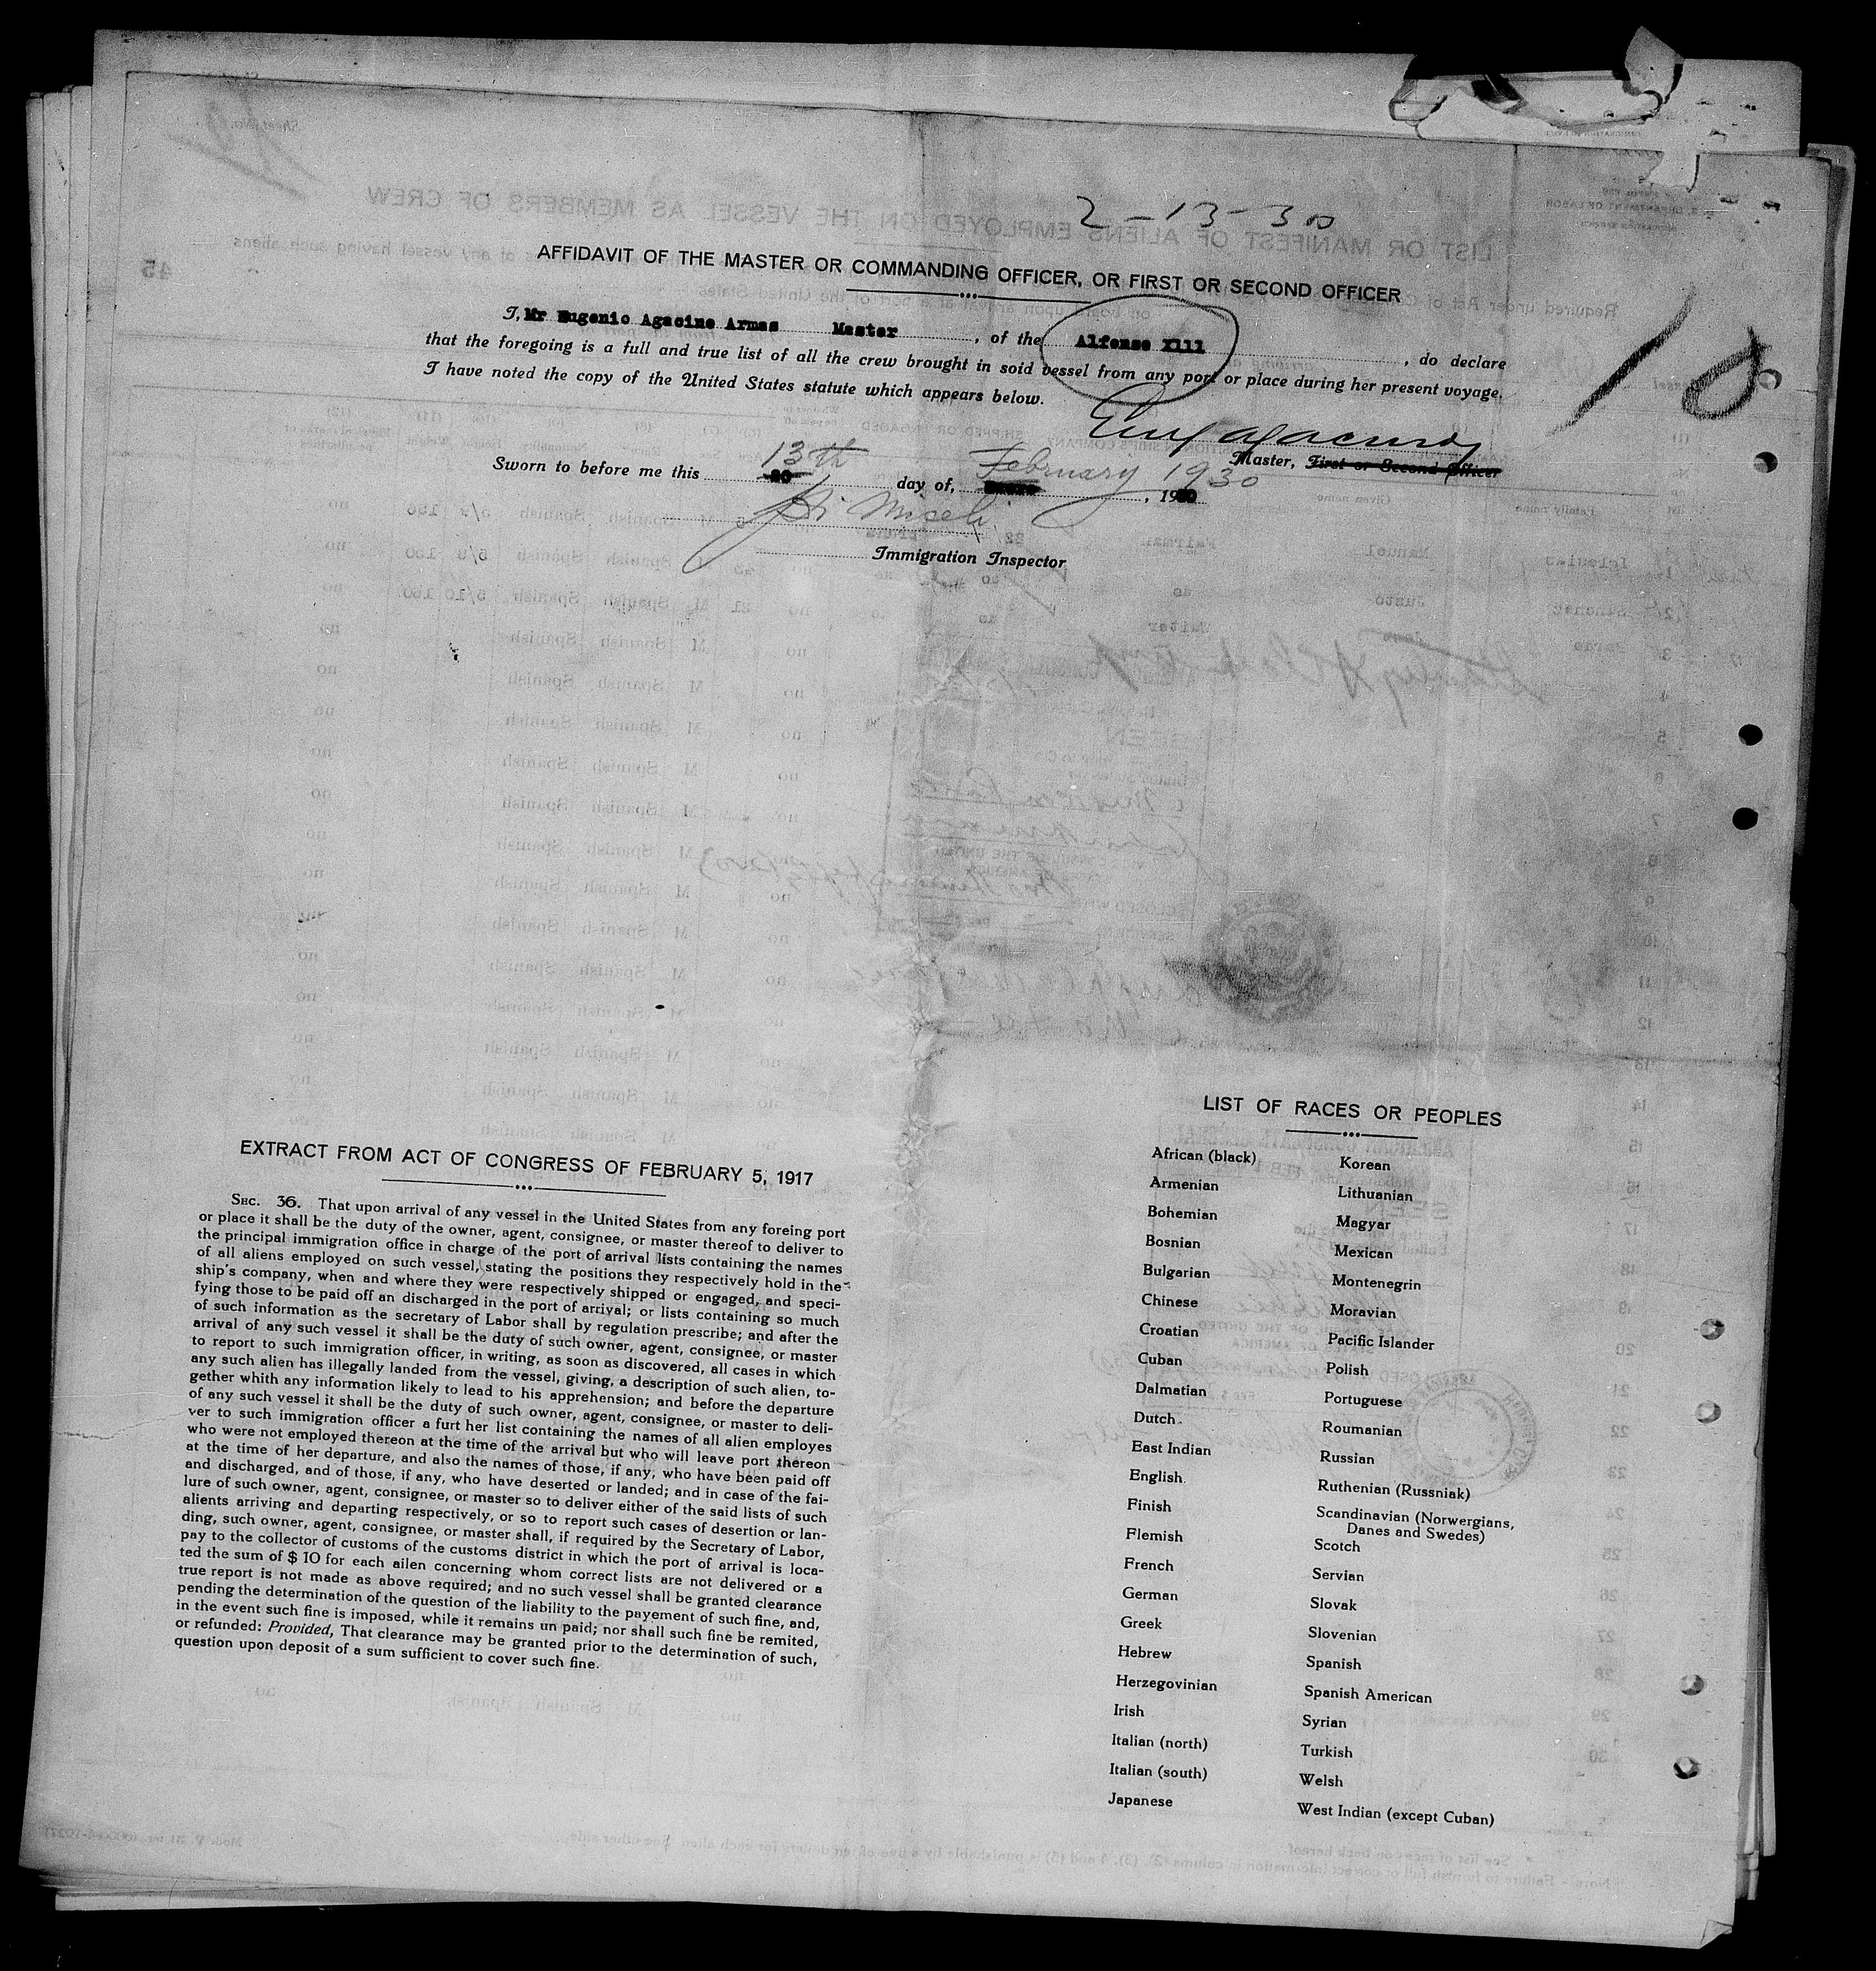 2-13-30
AFFIDAVIT OF THE MASTER OR COMMANDING OFFICER, OR FIRST OR SECOND OFFICER
I, Mr Eugenio Agacino Armas Master, of the Alfonso Xlll, do declare
that the foregoing is a full and true list of all the crew brought in soid vessel from any port or place during her present voyage.
I have noted the copy of the United States statute which appears below.
18
Master, First or Second Officer
Sworn to before me this 20 13th day of, February 1930, 1930
Immigration Inspector
EXTRACT FROM ACT OF CONGRESS OF FEBRUARY 5, 1917
SEC. 36. That upon arrival of any vessel in the United States from any foreing port
or place it shall be the duty of the owner, agent, consignee, or master thereof to deliver to
the principal immigration office in charge of the port of arrival lists containing the names
of all aliens employed on such vessel, stating the positions they respectively hold in the
ship's company, when and where they were respectively shipped or engaged, and speci-
fying those to be paid off an discharged in the port of arrival; or lists containing so much
of such information as the secretary of Labor shall by regulation prescribe; and after the
arrival of any such vessel it shall be the duty of such owner, agent, consignee, or master
to report to such immigration officer, in writing, as soon as discovered, all cases in which
any such alien has illegally landed from the vessel, giving, a description of such alien, to-
gether whith any information likely to lead to his apprehension; and before the departure
of any such vessel it shall be the duty of such owner, agent, consignee, or master to deli-
ver to such immigration officer a furt her list containing the names of all alien employes
who were not employed thereon at the time of the arrival but who will leave port thereon
at the time of her departure, and also the names of those, if any, who have been paid off
and discharged, and of those, if any, who have deserted or landed; and in case of the fai-
lure of such owner, agent, consignee, or master so to deliver either of the said lists of such
alients arriving and departing respectively, or so to report such cases of desertion or lan-
ding, such owner, agent, consignee, or master shall, if required by the Secretary of Labor,
pay to the collector of customs of the customs district in which the port of arrival is loca-
ted the sum of $ 10 for each ailen concerning whom correct lists are not delivered or a
true report is not made as above required; and no such vessel shall be granted clearance
pending the determination of the question of the liability to the payement of such fine, and,
in the event such fine is imposed, while it remains un paid; nor shall such fine be remited,
or refunded: Provided, That clearance may be granted prior to the determination of such,
question upon deposit of a sum sufficient to cover such fine.
LIST OF RACES OR PEOPLES
African (black)
Armenian
Bohemian
Bosnian
Bulgarian
Chinese
Croatian
Cuban
Dalmatian
Dutch
East Indian
English
Finish
Flemish
French
German
Greek
Hebrew
Herzegovinian
Irish
Italian (north)
Italian (south)
Japanese
Korean
Lithuanian
Magyar
Mexican
Montenegrin
Moravian
Pacific Islander
Polish
Portuguese
Roumanian
Russian
Ruthenian (Russniak)
Scandinavian (Norwergians,
Danes and Swedes)
Scotch
Servian
Slovak
Slovenian
Spanish
Spanish American
Syrian
Turkish
Welsh
West Indian (except Cuban)